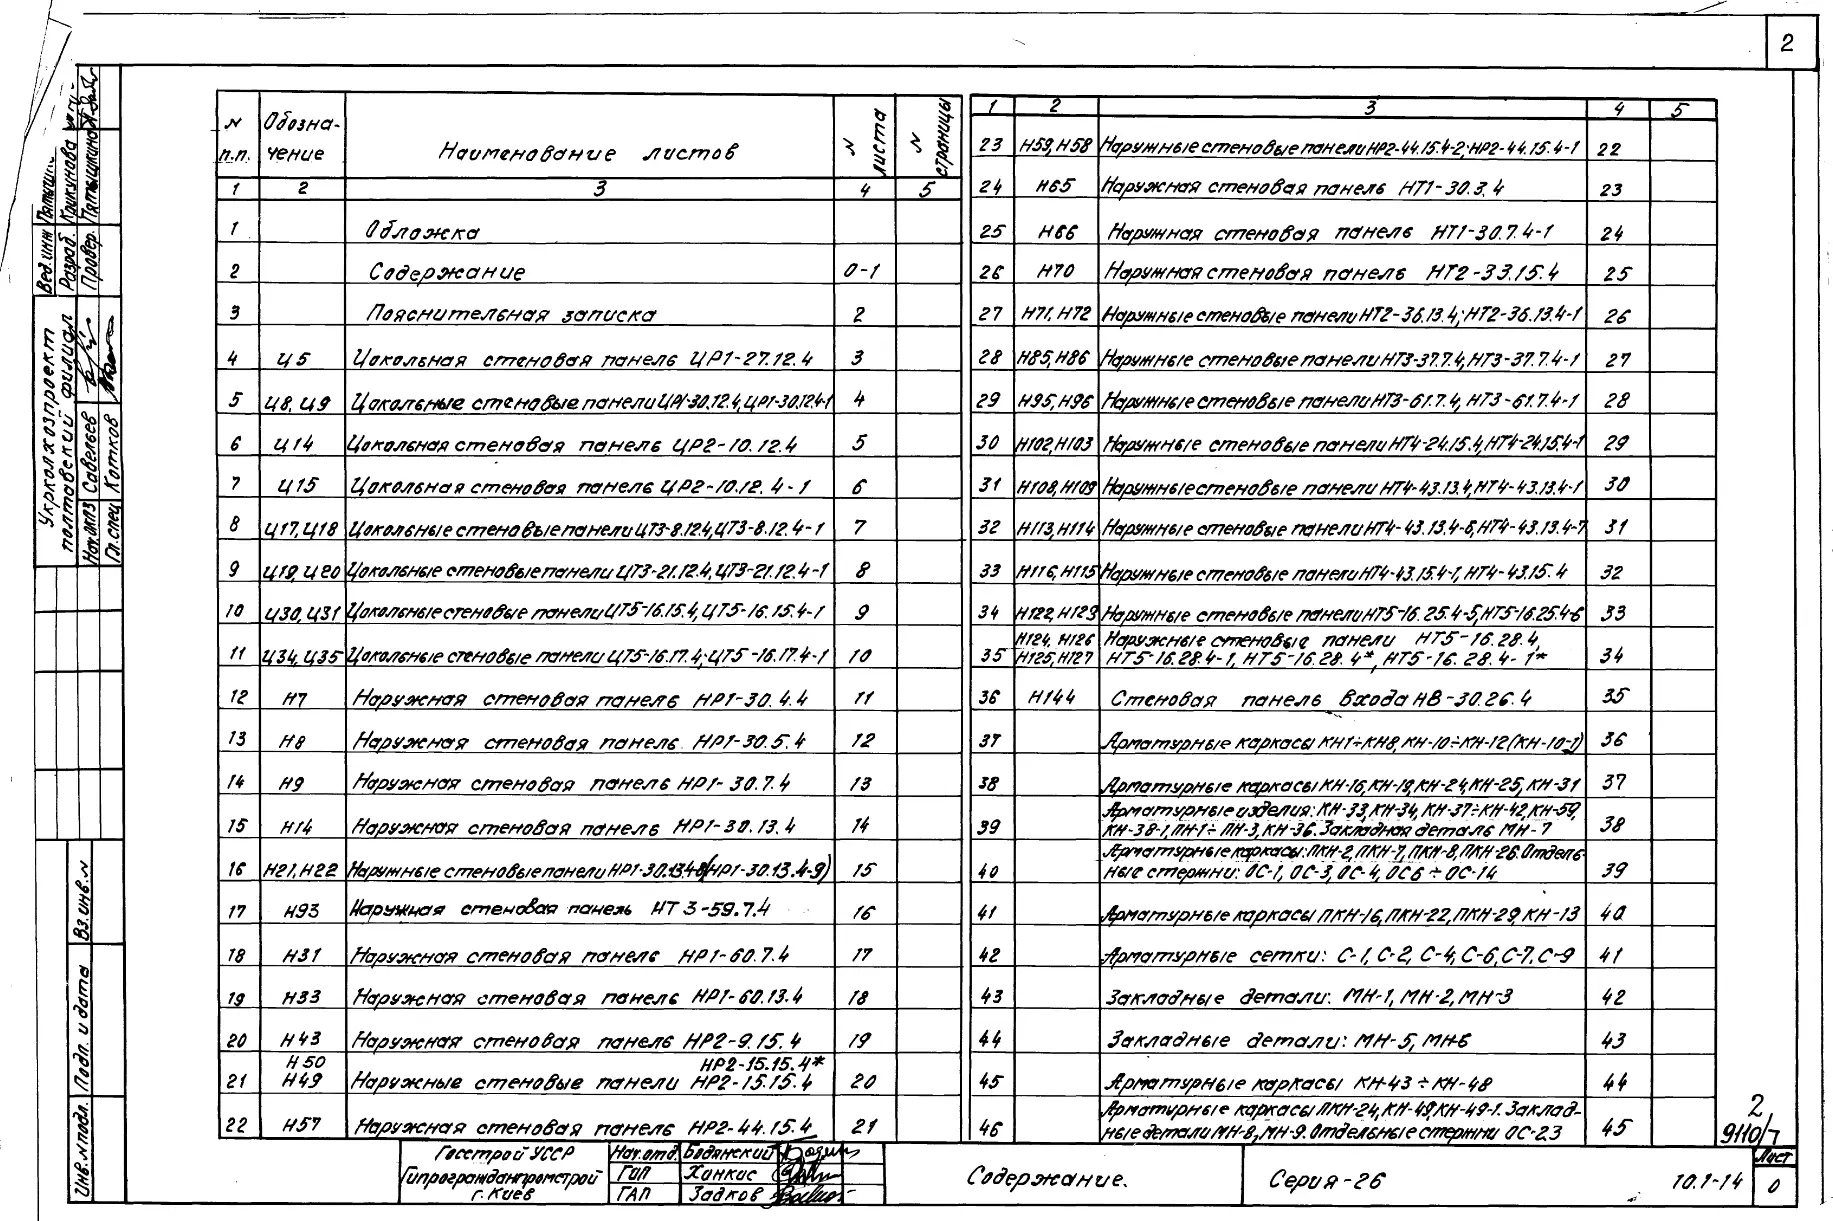 2
N п.п. Обозначение Наименование листов N листа N страницы
1 2 3 4 5
1 Обложка
2 Содержание 0-1
3 Пояснительная записка 2
4 Ц5 Цокольная стеновая панель ЦР1-27.12.4 3
5 Ц8, Ц9 Цокольные стеновые панели ЦР1-30.12.4, ЦР1-30.12.4-1 4
6 Ц14 Цокольная стеновая панель ЦР2-10.12.4 5
7 Ц15 Цокольная стеновая панель ЦР2-10.12.4-1 6
8 Ц17, Ц18 Цокольные стеновые панели ЦТ3-8.12.4, ЦТ3-8.12.4-1 7
9 Ц19, Ц20 Цокольные стеновые панели ЦТ3-21.12.4, ЦТ3-21.12.4-1 8
10 Ц30, Ц31 Цокольные стеновые панели ЦТ5-16.15.4, ЦТ5-16.15.4-1 9
11 Ц34, Ц35 Цокольные стеновые панели ЦТ5-16.17.4; ЦТ5-16.17.4-1 10
12 Н7 Наружная стеновая панель НР1-30.4.4 11
13 Н8 Наружная стеновая панель НР1-30.5.4 12
14 Н9 Наружная стеновая панель НР1-30.7.4 13
15 Н14 Наружная стеновая панель НР1-30.13.4 14
16 Н21, Н22 Наружные стеновые панели НР1-30.13.4-8 (НР1-30.13.4-9) 15
17 Н93 Наружная стеновая панель НТ3-59.7.4 16
18 Н31 Наружная стеновая панель НР1-60.7.4 17
19 Н33 Наружная стеновая панель НР1-60.13.4 18
20 Н43 Наружная стеновая панель НР2-9.15.4 19
Н50 НР2-15.15.4*
21 Н49 Наружные стеновые панели НР2-15.15.4 20
22 Н57 Наружная стеновая панель НР2-44.15.4 21
1 2 3 4 5
23 Н59, Н58 Наружные стеновые панели НР2-44.15.4-2; НР2-44.15.4-1 22
24 Н65 Наружная стеновая панель НТ1-30.3.4 23
25 Н66 Наружная стеновая панель НТ1-30.7.4-1 24
26 Н70 Наружная стеновая панель НТ2-33.15.4 25
27 Н71, Н72 Наружные стеновые панели НТ2-36.13.4; НТ2-36.13.4-1 26
28 Н85, Н86 Наружные стеновые панели НТ3-37.7.4, НТ3-37.7.4-1 27
29 Н95, Н96 Наружные стеновые панели НТ3-61.7.4, НТ3-61.7.4-1 28
30 Н102, Н103 Наружные стеновые панели НТ4-24.15.4, НТ4-24.15.4-1 29
31 Н108, Н109 Наружные стеновые панели НТ4-43.13.4, НТ4-43.13.4-1 30
32 Н113, Н114 Наружные стеновые панели НТ4-43.13.4-6, НТ4-43.13.4-7 31
33 Н116, Н115 Наружные стеновые панели НТ4-43.15.4-1, НТ4-43.15.4 32
34 Н122, Н123 Наружные стеновые панели НТ5-16.25.4-5, НТ5-16.25.4-6 33
Н124, Н126 Наружные стеновые панели НТ5-16.28.4,
35 Н125, Н127 НТ5-16.28.4-1, НТ5-16.28.4*, НТ5-16.28.4-1* 34
36 Н144 Стеновая панель входа НВ-30.26.4 35
37 Арматурные каркасы КН1÷КН8, КН-10÷КН-12 (КН-10-1) 36
38 Арматурные каркасы КН-16, КН-19, КН-24, КН-25, КН-31 37
Арматурные изделия: КН-33, КН-34, КН-37÷КН-42, КН-59,
39 КН-38-1, ПН-1÷ПН-3, КН-36. Закладная деталь МН-7 38
Арматурные каркасы: ПКН-2, ПКН-7, ПКН-8, ПКН-26. Отдель-
40 ные стержни: ОС-1, ОС-3, ОС-4, ОС6÷ОС-14 39
41 Арматурные каркасы ПКН-16, ПКН-22, ПКН-29, КН-13 40
42 Арматурные сетки: С-1, С-2, С-4, С-6, С-7, С-9 41
43 Закладные детали: МН-1, МН-2, МН-3 42
44 Закладные детали: МН-5, МН-6 43
45 Арматурные каркасы КН-43÷КН-48 44
Арматурные каркасы ПКН-24, КН-49, КН-49-1. Заклад-
46 ные детали МН-8, МН-9. Отдельные стержни ОС-23 45
2
9110/7
Госстрой УССР
Гипрогражданпромстрой
г. Киев
Нач.отд. Бодянский
ГИП Ханкис
ГАП Задков
Содержание.
Серия-26
10.1-14
Лист
0
Укрколхозпроект
полтавский филиал
Вед.инж
Разраб. Крикунова
Провер.
Нач.АКПЗ Савельев
Гл.спец Котков
Вз.инв.N
Подп. и дата
Инв.N подл.